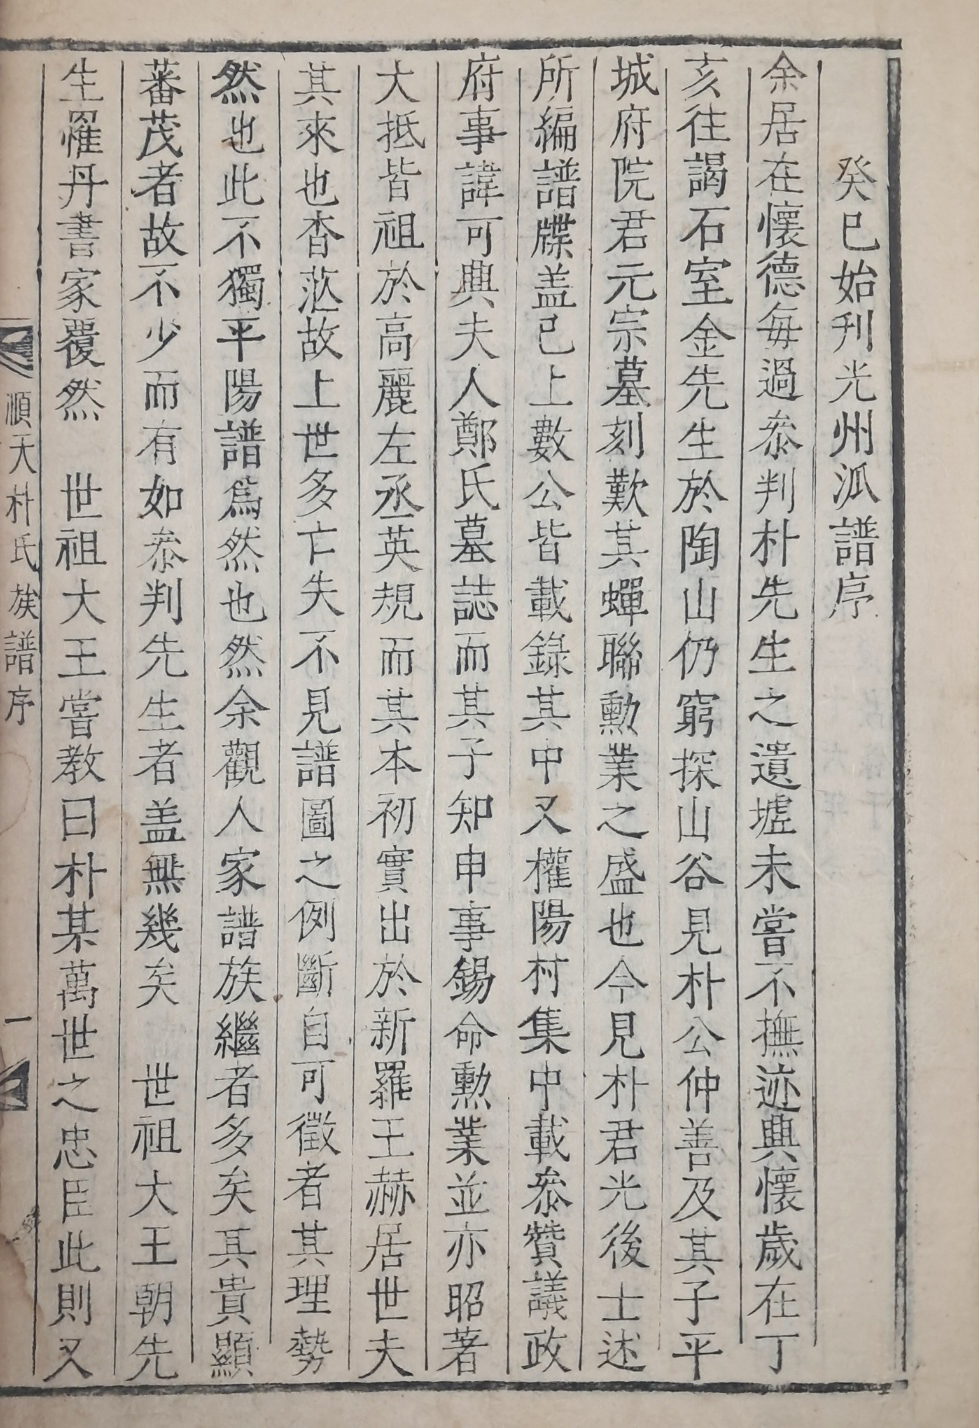 癸巳始刋光州派譜序
余居在懷德每過叅判朴先生之遺墟未嘗不撫迹興懷歲在丁
亥往謁石室金先生於陶山仍窮探山谷見朴公仲善及其子平
城府院君元宗墓刻歎其蟬聯勳業之盛也今見朴君光後士述
所編譜牒盖已上數公皆載錄其中又權陽村集中載叅贊議政
府事諱可興夫人鄭氏墓誌而其子知申事錫命勳業並亦昭著
大抵皆祖於高麗左丞英規而其本初實出於新羅王赫居世夫
其來也杳茫故上世多亡失不見譜圖之例斷自可徵者其理勢
然也此不獨平陽譜爲然也然余觀人家譜族繼者多矣其貴顯
蕃茂者故不少而有如叅判先生者盖無幾矣　世祖大王朝先
生罹丹書家覆然　世祖大王嘗教曰朴某萬世之忠臣此則又
順天朴氏族譜序　一